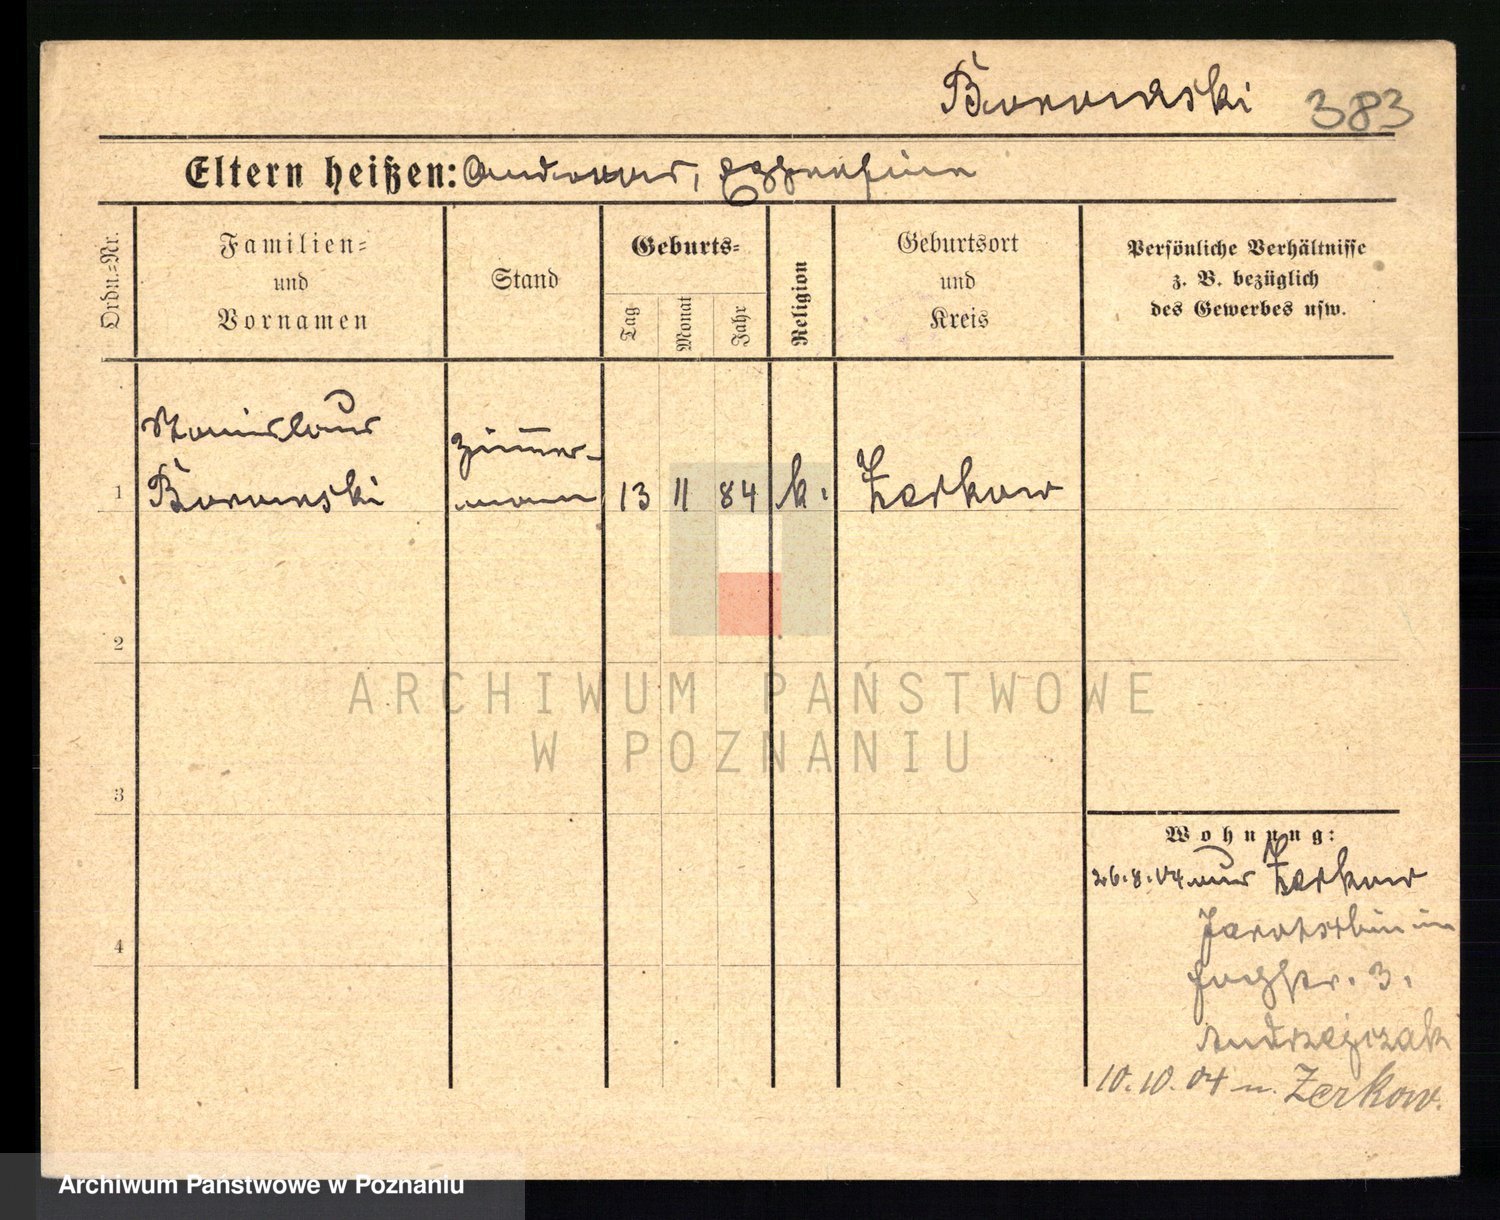 Borowski 383
Eltern heißen: Andreas,
Ordn.=Nr.
Familien=
und
Vornamen
Stand
Geburts=
Tag
Monat
Jahr
Religion
Geburtsort
und
Kreis
Persönliche Verhältnisse
z. B. bezüglich
des Gewerbes usw.
Stanislaus
Borowski
Zimmer-
mann
1 13 11 84 k. Zerkow
2
ARCHIWUM PAŃSTWOWE
W POZNANIU
3
Wohnung:
26.8.04 aus Zerkow
4
3.
Andrzejczak
10.10.04 n. Zerkow.
Archiwum Państwowe w Poznaniu